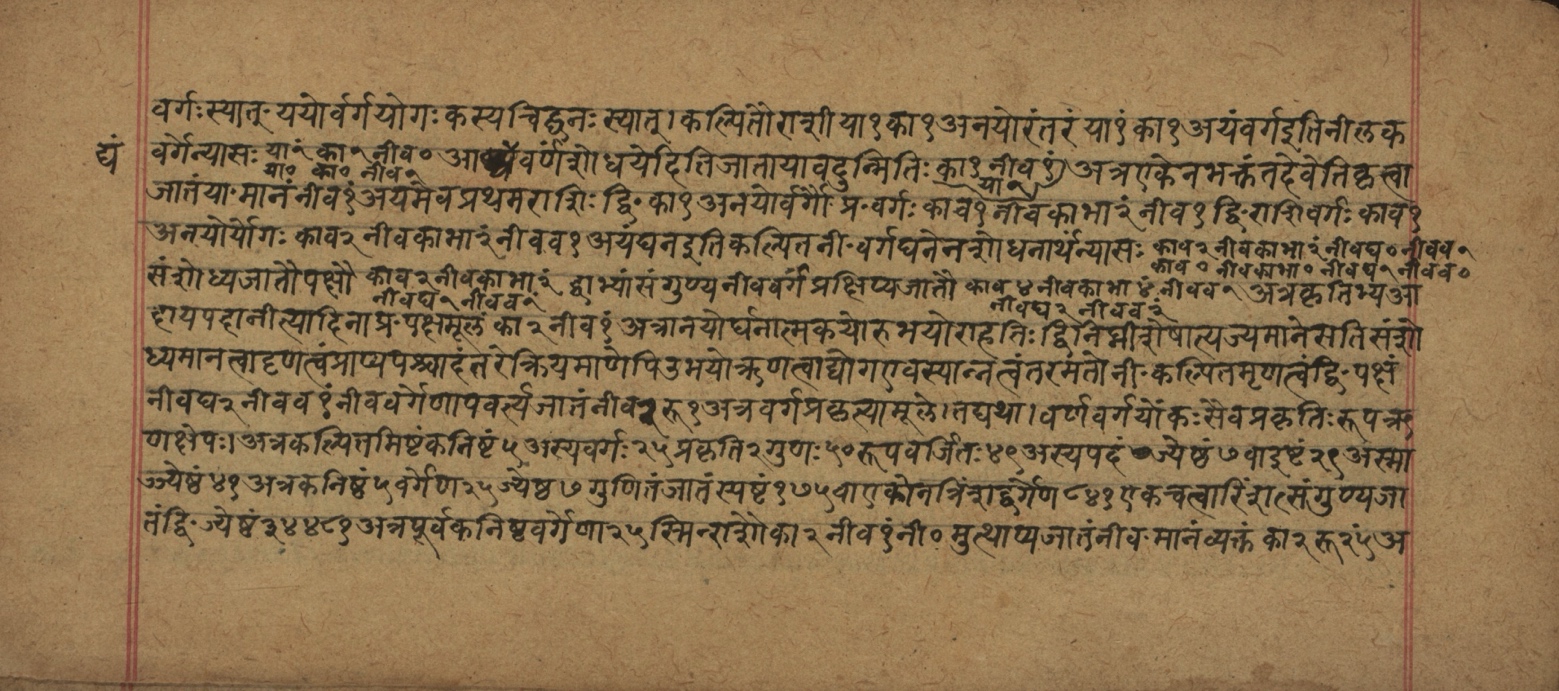 वर्गःस्यात्॰ययोर्वर्गयोगःकस्यचिद्घनःस्यात्।कल्पितौराशीया१का१अनयोरंतरंया१ंका१अयंवर्गइतिनीलक
द्यं
वर्गेन्यासःया१ंका१नीव०
या० का० नीव१
आद्यंवर्णंशोधयेदितिजातायावदुन्मितिःका१नीव१ं
या१
अत्रएकेनभक्तंतदेवेतिकृत्वा
जातंया॰मानंनीव१ंअयमेवप्रथमराशिःद्वि॰का१अनयोर्वर्गौप्र॰वर्गःकाव१नीवकाभा२ंनीव१द्वि॰राशिवर्गःकाव१
अनयोर्योगःकाव२नीवकाभा२ंनीवव१अयंघनइतिकल्पितनी॰वर्गघनेनशोधनार्थंन्यासःकाव२नीवकाभा२ंनीवघ०नीवव१
काव०नीवकाभा०नीवघ१नीवव०
संशोध्यजातौपक्षौकाव२नीवकाभा२ं
नीवघ१नीवव१ं
द्वाभ्यांसंगुण्यनीववर्गंप्रक्षिप्यजातौकाव४नीवकाभा४ंनीवव१
नीवघ२नीवव१ं
अत्रकृतिभ्यआ
दायपदानीत्यादिनाप्र॰पक्षमूलंका२नीव१ंअत्रानयोर्घनात्मकयोरुभयोराहतिःद्विनिघ्नींशेषात्यज्यमानेसतिसंशो
ध्यमानत्वादृणत्वंप्राप्यपश्चादंतरेक्रियमाणेपिउभयोऋणत्वाद्योगएवस्यान्नत्वंतरमंतोनी॰कल्पितमृणत्वंद्वि॰पक्षं
नीवघ२नीवव१ंनीववर्गेणापवर्त्यजातंनीव२रू१अत्रवर्गप्रकृत्यामूले।तद्यथा।वर्णवर्गयोंकःसैवप्रकृतिःरूपऋ
णक्षेपः।अत्रकल्पितमिष्टंकनिष्टं५अस्यवर्गः२५प्रकृति२गुणः५०रूपवर्जितः४९अस्यपदंज्येष्ठं७वाइष्टं२९अस्मा
ज्ज्येष्ठं४१अत्रकनिष्ठं५वर्गेण२५ज्येष्ठ७गुणितंजातंस्पष्टं१७५वाएकोनत्रिंशद्वर्गेण८४१एकचत्वारिंशत्संगुण्यजा
तंद्वि॰ज्येष्ठं३४४८१अत्रपूर्वकनिष्ठवर्गेणा२५स्मिन्राशोका२नीव१ंनी०मुत्थाप्यजातंनीव॰मानंव्यक्तंका२रू२ं५अ